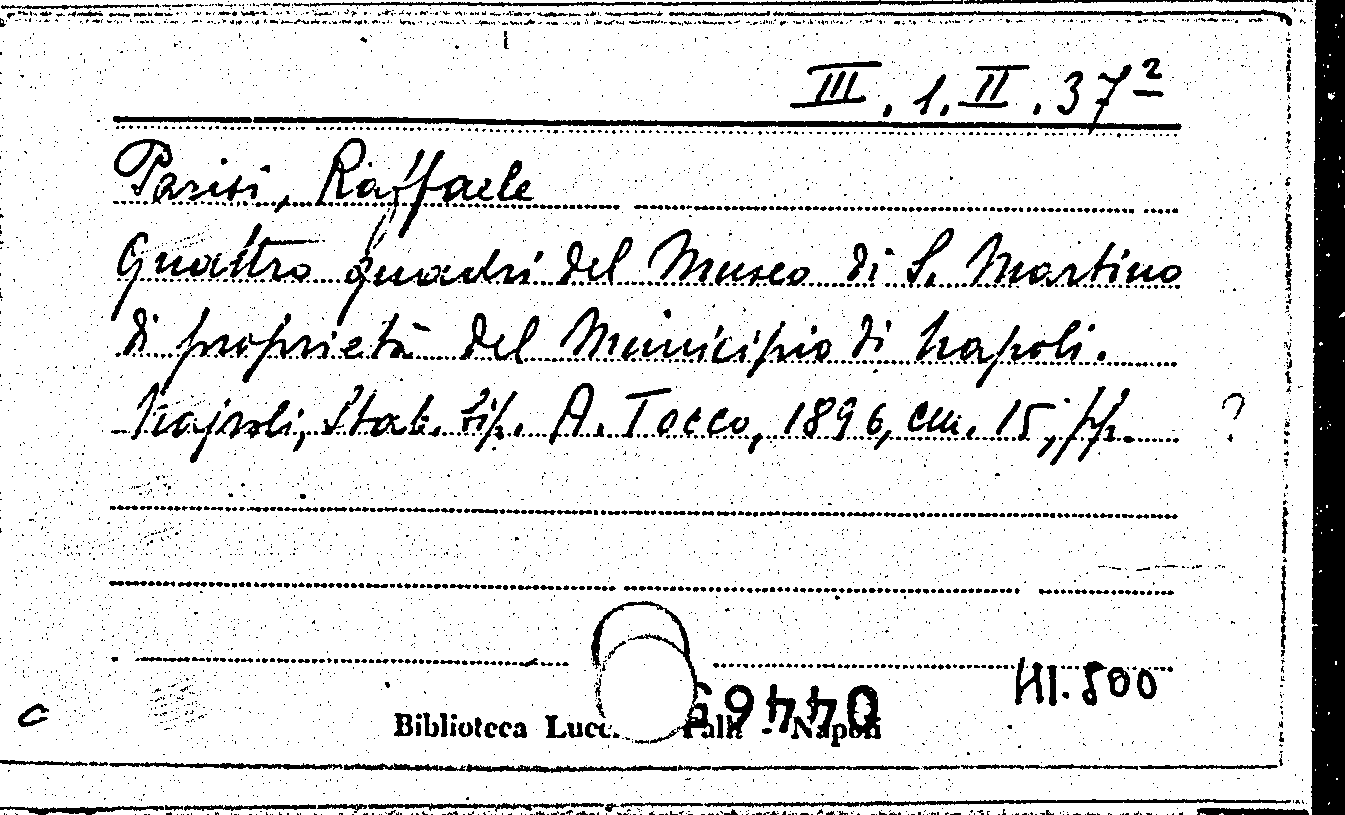 III.1.II.37²
Parisi, Raffaele
Quattro quadri del Museo di S. Martino
di proprietà del Municipio di Napoli.
Napoli, Stab. tip. A. Tocco, 1896, cm. 15, pp. ?
HI.500
Biblioteca Lucc. Palli - Napoli
C